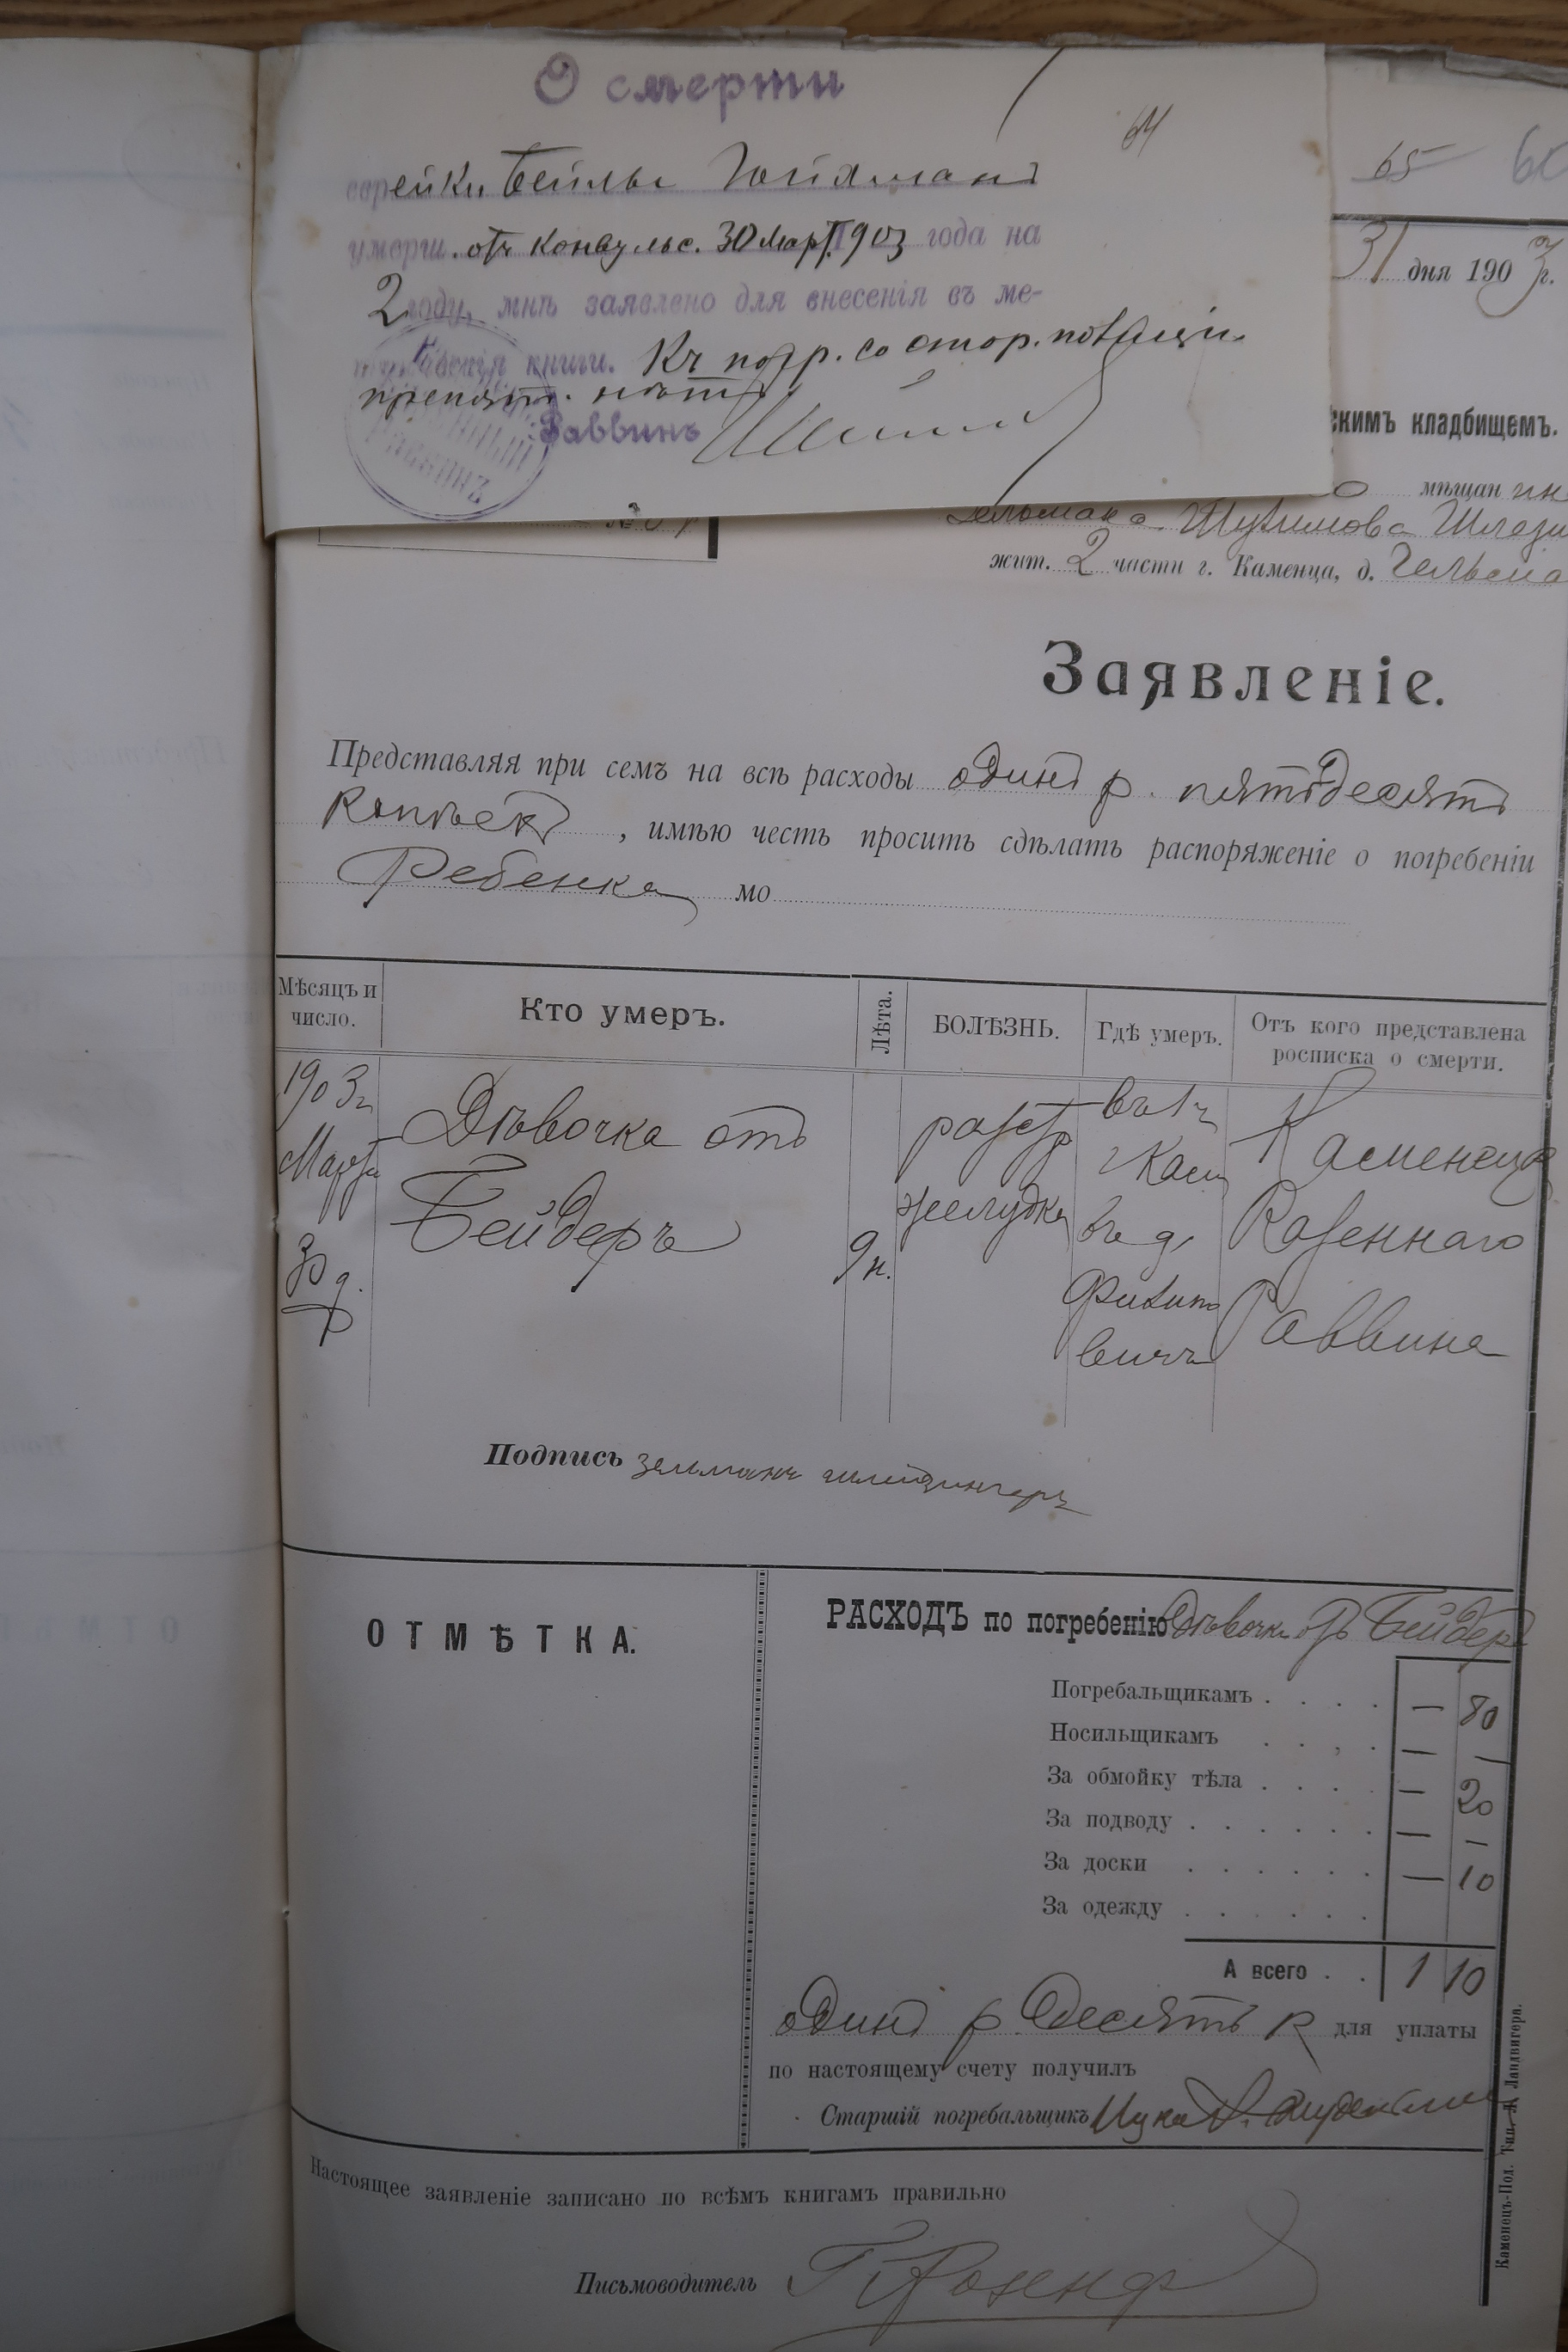 О смерти
64
еврейки Бейлы Гойхман
умерш. отъ конвульс. 30 Март. 1903 года на
2 году, мнѣ заявлено для внесенія въ ме-
трическія книги. Къ погр. со стор. полиціи
препят. нѣтъ.
Раввинъ
65
31 дня 1903 г.
скимъ кладбищемъ.
мѣщанин
жит. 2 части г. Каменца, д.
Заявленіе.
Представляя при семъ на всѣ расходы одинъ р. пятьдесятъ
копѣекъ, имѣю честь просить сдѣлать распоряженіе о погребеніи
Ребенка мо
Мѣсяцъ и число.
Кто умеръ.
Лѣта.
БОЛѢЗНЬ.
Гдѣ умеръ.
Отъ кого представлена
росписка о смерти.
1903 г.
Марта
30 д.
Дѣвочка отъ
Бейдеръ
9 н.
разстр
желудка
въ г.
Кам
въ д.
вичъ
Каменецк
Казеннаго
Раввина
Подпись зельманъ шлейзингеръ
ОТМѢТКА.
РАСХОДЪ по погребенію Дѣвочки отъ Бейдеръ
Погребальщикамъ . . . . — 80
Носильщикамъ . . . . — —
За обмойку тѣла . . . . — 20
За подводу . . . . . . — —
За доски . . . . . . — 10
За одежду . . . . . .
А всего . . 1 10
одинъ р. десять к для уплаты
по настоящему счету получилъ
Старшій погребальщикъ
Настоящее заявленіе записано по всѣмъ книгамъ правильно
Письмоводитель
Каменецъ-Под. Тип. Ландвигера.